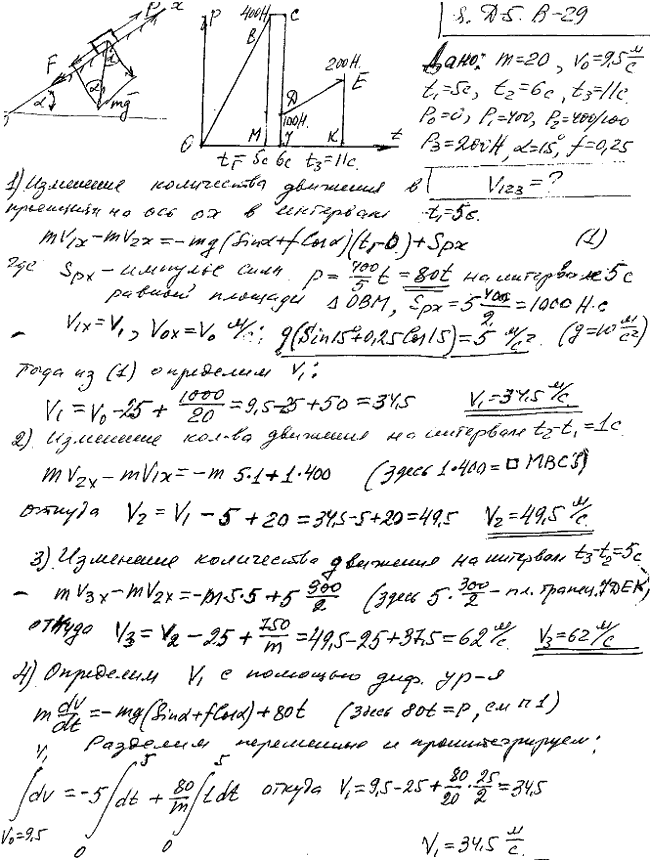 S. D-5. B-29
Дано: m=20, V₀=9,5 м/с
t₁=5c, t₂=6c, t₃=11c
P₀=0, P₁=400, P₂=400/100
P₃=200H, α=15°, f=0,25
V₁₂₃=?
P x
F
α
mg
P
400H
B C
200H.
E
D
100H.
O M J K t
t₁=5c 6c t₃=11c.
1) Изменение количества движения в
проекции на ось ох в интервале t₁=5c.
mV₁ₓ-mV₂ₓ=-mg(Sinα+fCosα)(t₁-0)+Spx (1)
где Spx - импульс силы P=400/5 t=80t на интервале 5c
равной площади Δ OBM, Spx=5 400/2=1000 H·c
- V₁ₓ=V₁, V₀ₓ=V₀ м/c; g(Sin15°+0,25Cos15)=5 м/c². (g=10 м/c²)
тогда из (1) определим V₁:
V₁=V₀-25+1000/20=9,5-25+50=34,5 V₁=34,5 м/c
2). Изменение кол-ва движения на интервале t₂-t₁=1c.
mV₂ₓ-mV₁ₓ=-m 5·1+1·400 (Здесь 1·400=□ MBCJ)
откуда V₂=V₁-5+20=34,5-5+20=49,5 V₂=49,5 м/c.
3). Изменение количества движения на интервале t₃-t₂=5c
- mV₃ₓ-mV₂ₓ=-m5·5+5 300/2 (Здесь 5·300/2 - пл. трапец. JDEK)
откуда V₃=V₂-25+750/m=49,5-25+37,5=62 м/c. V₃=62 м/c
4). Определим V₁ с помощью диф. ур-я
m dv/dt=-mg(Sinα+fCosα)+80t (Здесь 80t=P, см п1)
Разделим переменные и проинтегрируем:
∫dv=-5∫dt+80/m∫tdt откуда V₁=9,5-25+80/20·25/2=34,5
V₁ 5 5
V₀=9,5 0 0
V₁=34,5 м/c.